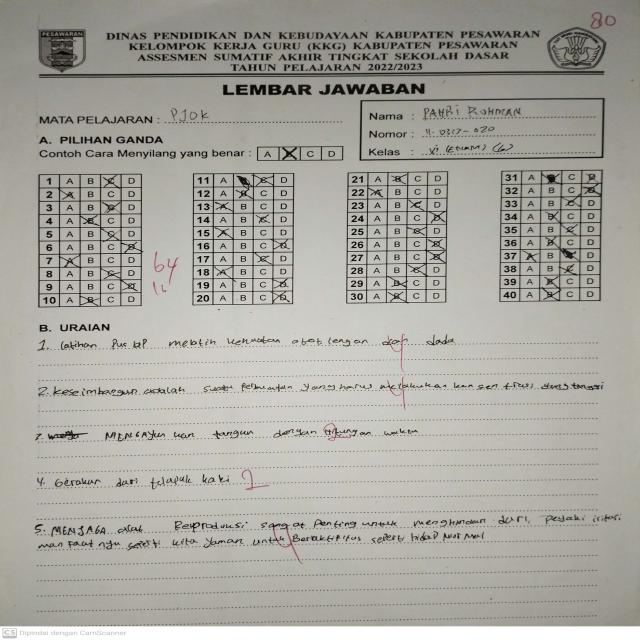 PESAWARAN
DINAS PENDIDIKAN DAN KEBUDAYAAN KABUPATEN PESAWARAN
KELOMPOK KERJA GURU (KKG) KABUPATEN PESAWARAN
ASSESMEN SUMATIF AKHIR TINGKAT SEKOLAH DASAR
TAHUN PELAJARAN 2022/2023
80
LEMBAR JAWABAN
MATA PELAJARAN : PJOK
Nama : PAHRI ROHMAN
Nomor :
Kelas : VI (ENAM) (6)
A. PILIHAN GANDA
Contoh Cara Menyilang yang benar : A B C D
1 A B C D
2 A B C D
3 A B C D
4 A B C D
5 A B C D
6 A B C D
7 A B C D
8 A B C D
9 A B C D
10 A B C D
64
16
11 A B C D
12 A B C D
13 A B C D
14 A B C D
15 A B C D
16 A B C D
17 A B C D
18 A B C D
19 A B C D
20 A B C D
21 A B C D
22 A B C D
23 A B C D
24 A B C D
25 A B C D
26 A B C D
27 A B C D
28 A B C D
29 A B C D
30 A B C D
31 A B C D
32 A B C D
33 A B C D
34 A B C D
35 A B C D
36 A B C D
37 A B C D
38 A B C D
39 A B C D
40 A B C D
B. URAIAN
1. latihan Pus UP melatih kekuatan otot lengan dan dada
2. keseimbangan adalah suatu yang harus melakukan
3. MENGAyun kan tangan dengan hitungan
4. Gerakan dari telapak kaki 2
5. MENJAGA alat Reproduksi sangat Penting untuk menghindari dari,
manfaat nya seperti kita untuk Beraktifitas seperti
CS Dipindai dengan CamScanner